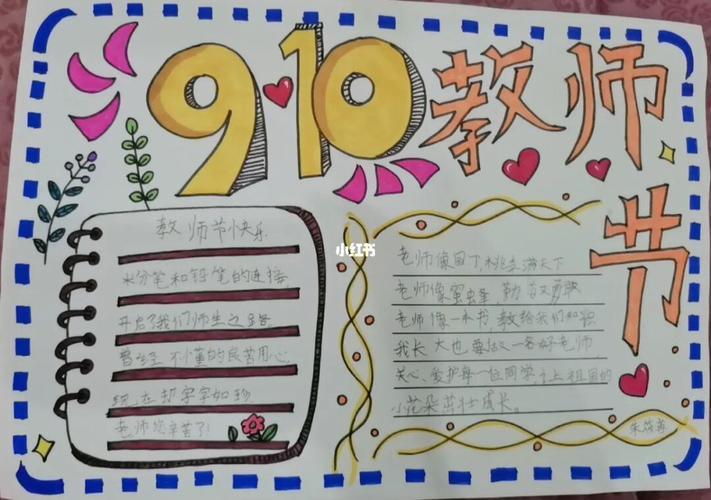 910教师节
教师节快乐
粉笔和铅笔的连接
开启了我们师生之路
曾经不懂的良苦用心
现在却字字如珍
老师您辛苦了!
小红书
老师像园丁桃李满天下
老师像蜜蜂,勤又勇敢
老师像一本书,教给我们知识
我长大也要做一名好老师
关心、爱护每一位同学,让祖国的
小花朵茁壮成长。